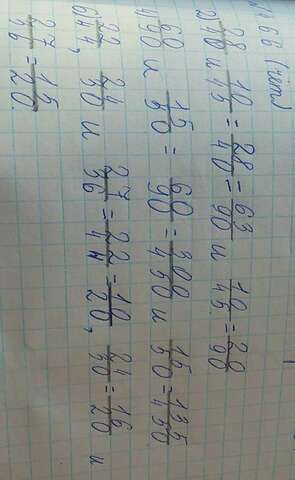 2) 28/40 и 10/45 = 28/40 = 63/90 и 10/45 = 20/90
4) 60/90 и 15/50 = 60/90 = 300/450 и 15/50 = 135/450
6) 22/44, 24/30 и 27/36 = 22/44 = 10/20, 24/30 = 16/20 и
27/36 = 15/20.